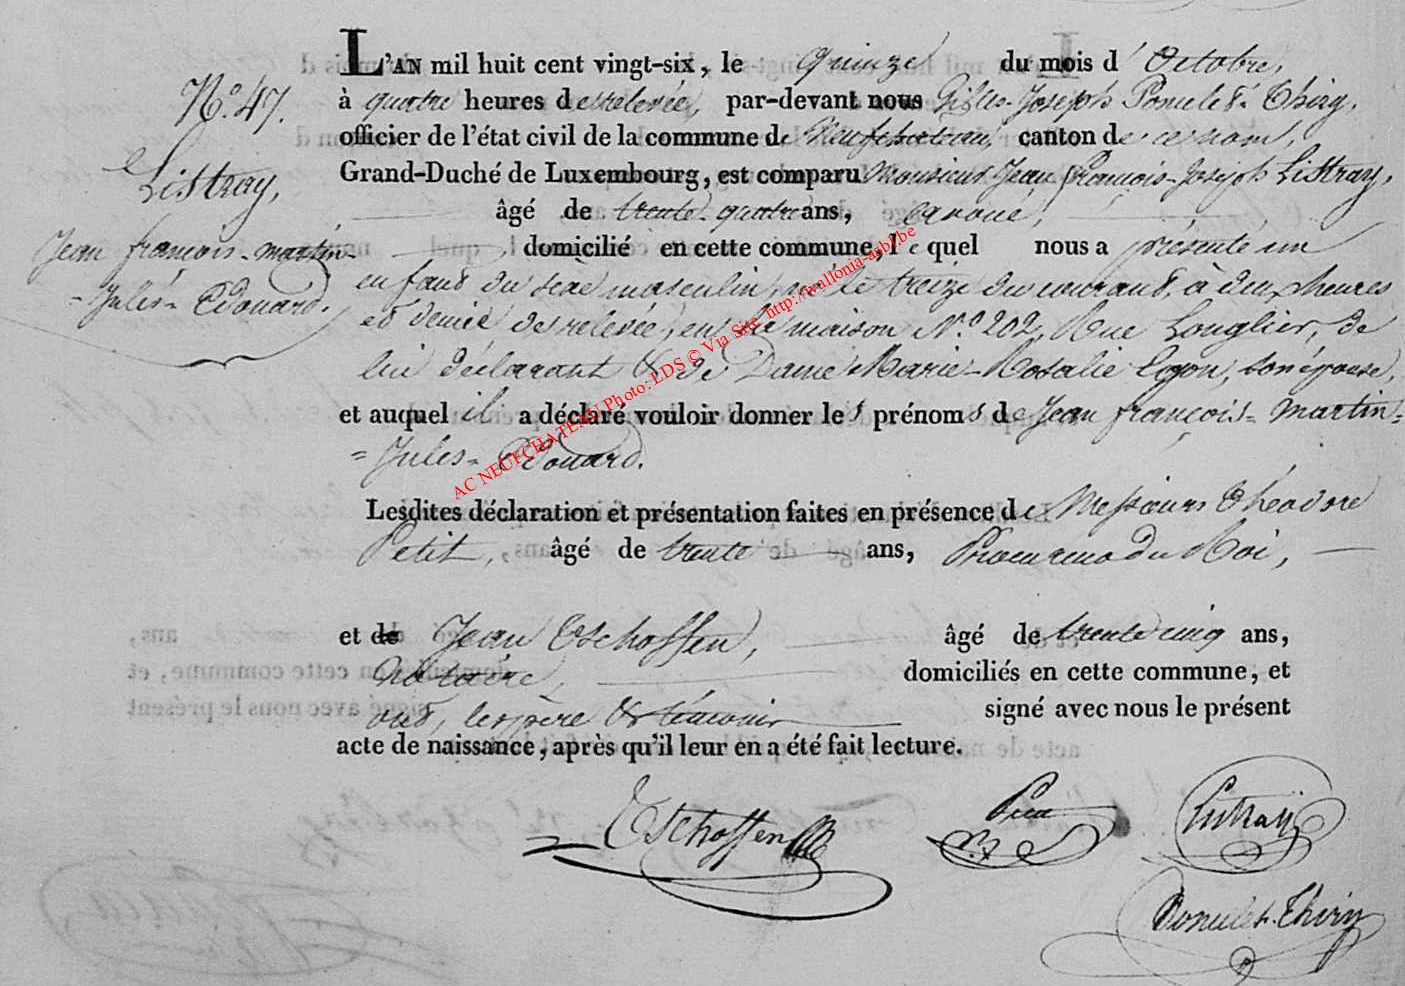 L'AN mil huit cent vingt-six, le quinze du mois d'Octobre,
N.° 47.
à quatre heures de relevée, par-devant nous Gilles-Joseph Poncelet-Thiry,
officier de l'état civil de la commune de Neufchateau, canton de ce nom,
Listray,
Grand-Duché de Luxembourg, est comparu Monsieur Jean françois-Joseph Listray,
âgé de trente-quatre ans, avoué,
Jean françois-martin-
domicilié en cette commune, lequel nous a présenté un
=Jules=Edouard.
enfant du sexe masculin, né le treize du courant, à deux heures
et demie de relevée, en sa maison N.° 202, Rue Longlier, de
lui déclarant & de Dame Marie-Rosalie, son épouse,
et auquel il a déclaré vouloir donner les prénoms de Jean françois=martin=
=Jules=Edouard.
Lesdites déclaration et présentation faites en présence de Messieurs Théodore
Petit, âgé de trente ans, Procureur du Roi,
et de Jean Tschoffen, âgé de trente cinq ans,
Notaire, domiciliés en cette commune, et
ont, les père & témoins signé avec nous le présent
acte de naissance, après qu'il leur en a été fait lecture.
Tschoffen Petit Listray
Poncelet-Thiry
AC NEUFCHATEAU Photo: LDS © Via Site http://wallonia-asbl.be